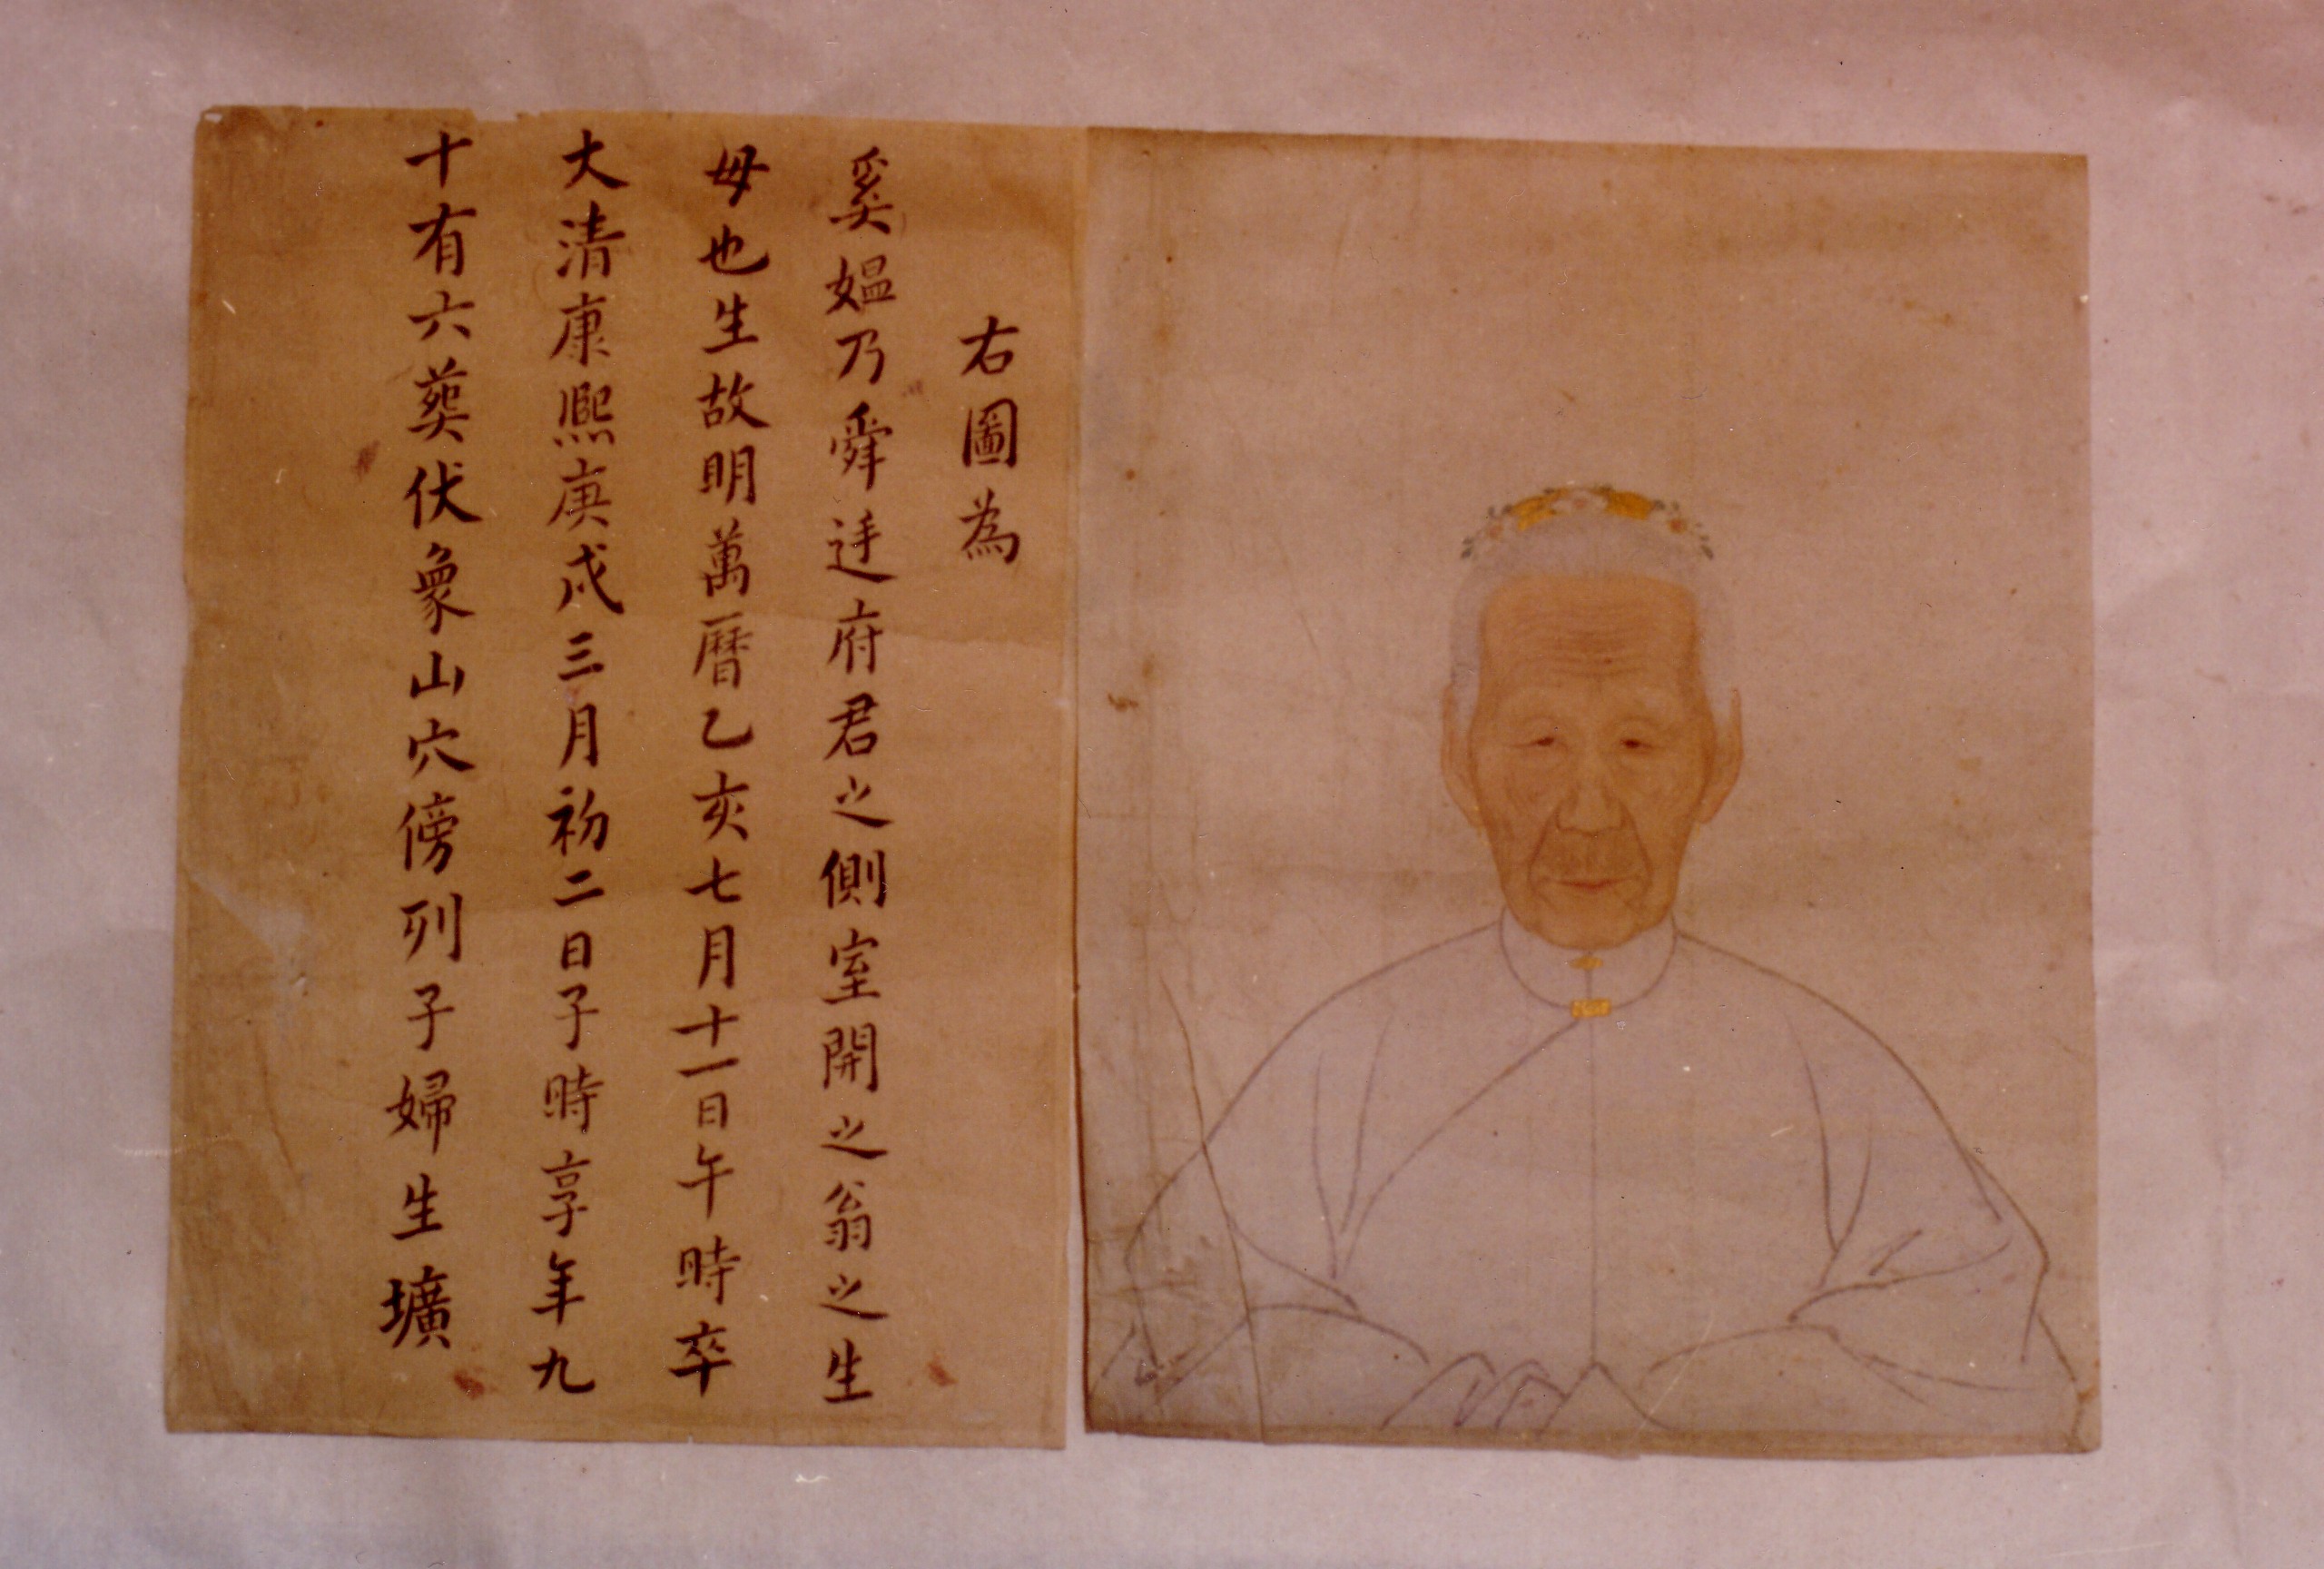 右圖為
奚媼乃舜迋府君之側室開之翁之生
母也生故明萬曆乙亥七月十一日午時卒
大清康熙庚戌三月初二日子時享年九
十有六葬伏象山穴傍列子婦生壙